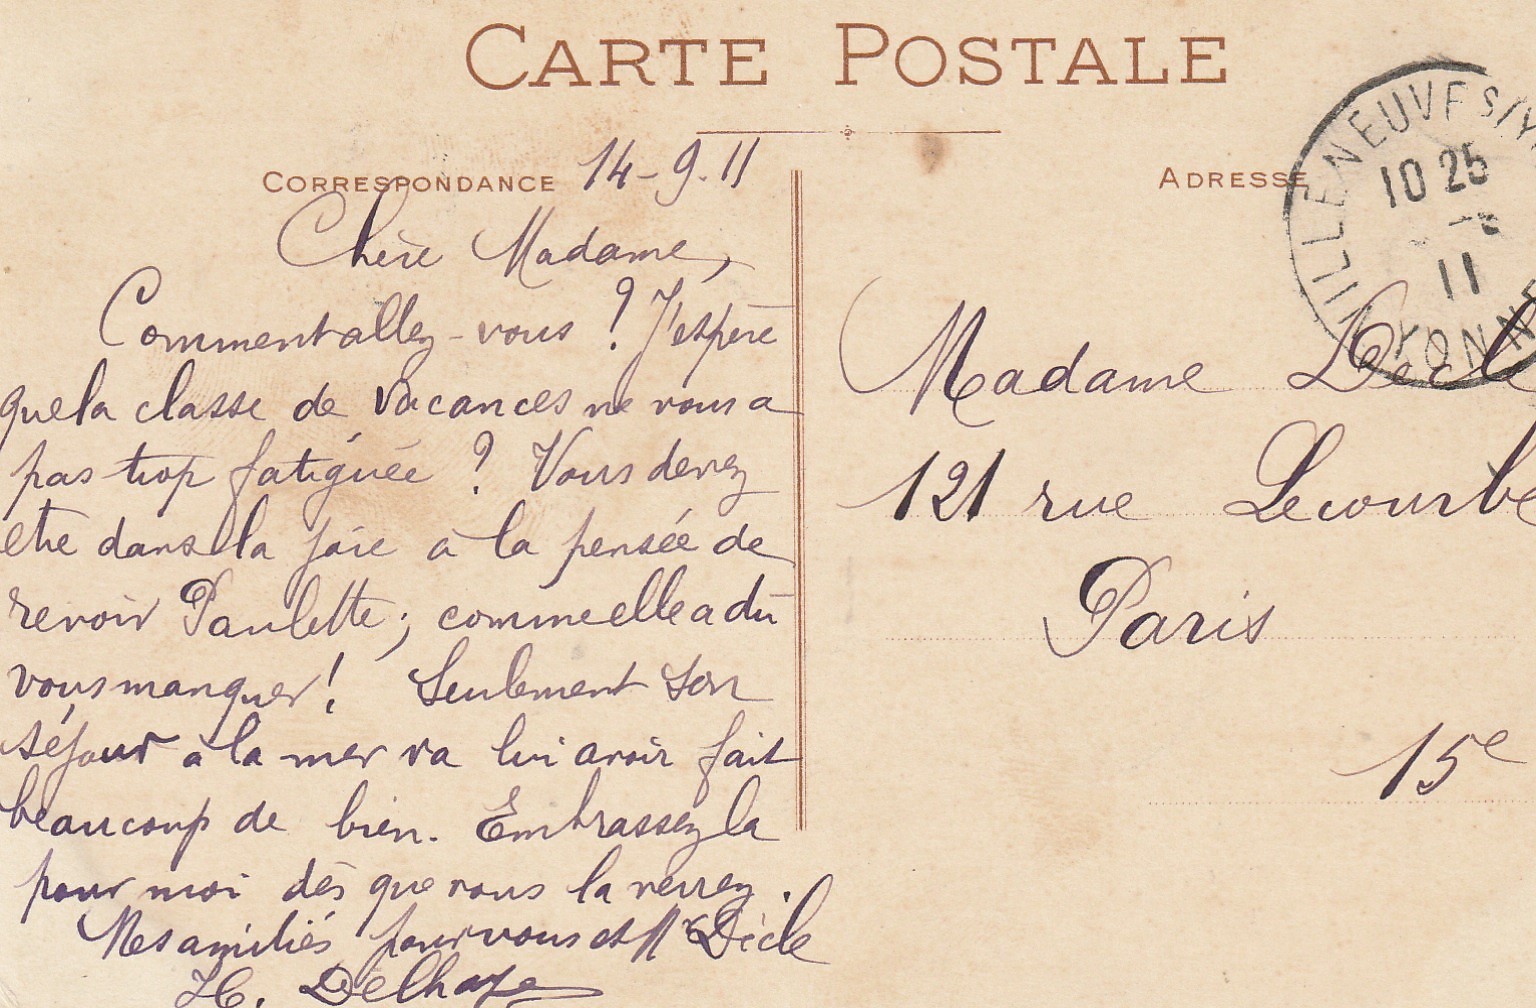 CARTE POSTALE
CORRESPONDANCE 14-9.11
Chère Madame,
Comment allez-vous ? J'espère
que la classe de vacances ne vous a
pas trop fatiguée ? Vous devez
etre dans la joie à la pensée de
revoir Paulette ; comme elle a dû
vous manquer ! Seulement son
séjour à la mer va lui avoir fait
beaucoup de bien. Embrassez la
pour moi dès que vous la verrez.
Mes amitiés pour vous et Mr Dècle
H. Delhaye
ADRESSE
VILLENEUVE S/Y
10 25
11
YONNE
Madame Decl
121 rue Lecourbe
Paris
15e